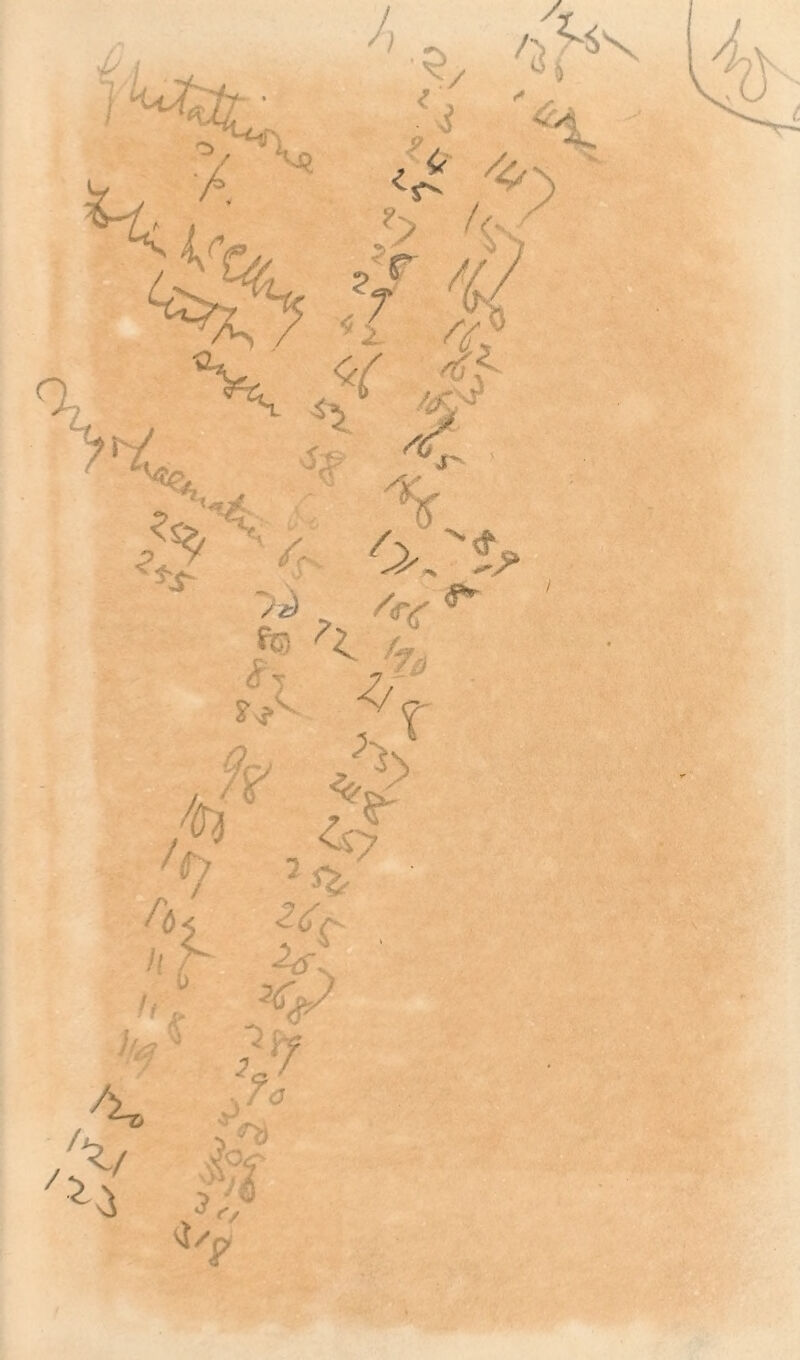 Glutathione
?p.
Folin McEllroy
test for
sugar
Myohaematin
254
255
h. 21
23
24
25
27
28
29
42
46
52
58
60
65
70 72
80
82
83
98
100
107
102
116
118
119
120
121
123
125
136
142
147
157
160
162
163
165
- 89
171 - 8
186
190
218
237
248
257
254
265
267
268
289
290
300
309
310
311
318